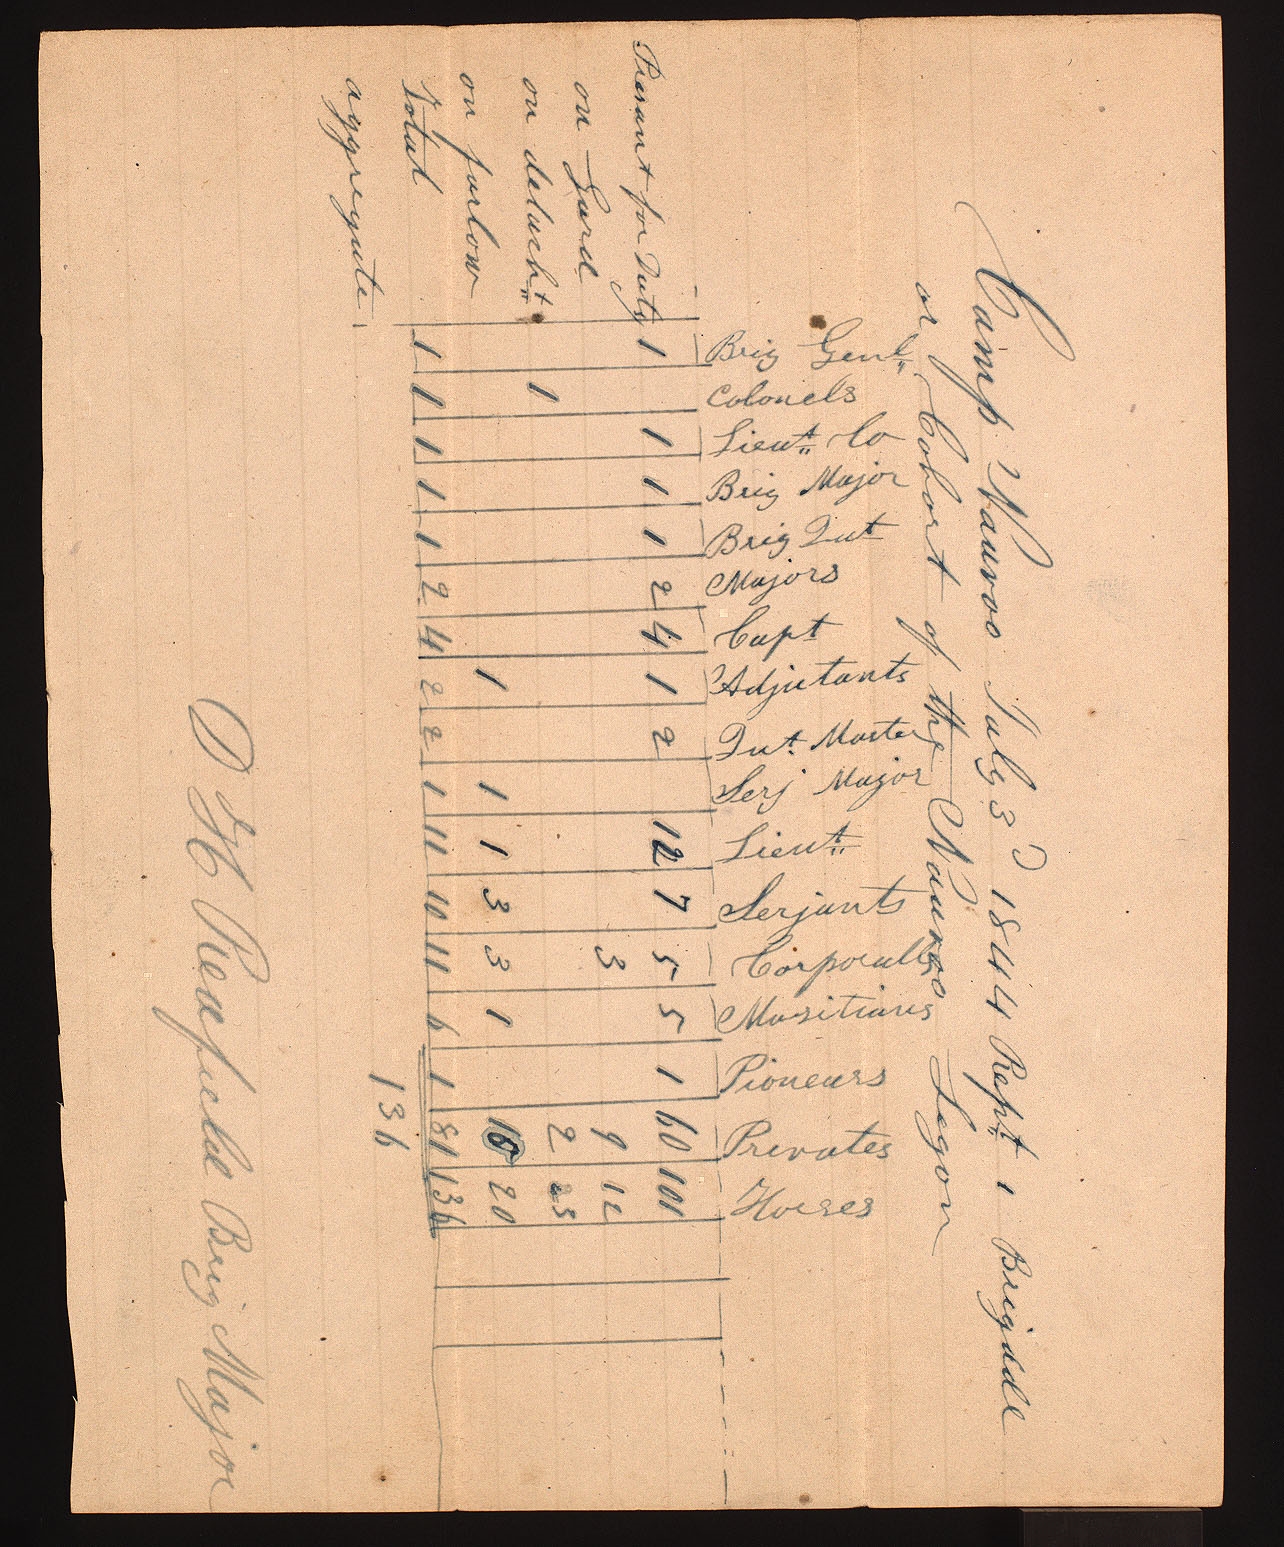 Camp Nauvoo July 3d 1844 Rept 1 Brigade
or Cohort of the Nauvoo Legon
Brig Genl Colonels Lieut Co Brig Major Brig Qut Majors Capt Adjutants Qut Master Serj Major Lieut Serjants Corporalls Musitians Pioneurs Prevates Horses
Presant for Duty 1 1 1 1 2 4 1 2 12 7 5 5 1 60 101
on Gard 3 9 12
on detacht 1 2 23
on furlow 1 1 1 3 3 1 10 20
Total 1 1 1 1 1 2 4 2 2 1 11 10 11 6 1 81 136
aggregate 136
D H Redfield Brig Major